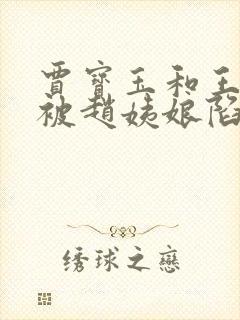 賈寶玉和王
被趙姨娘陷
绣球之戀